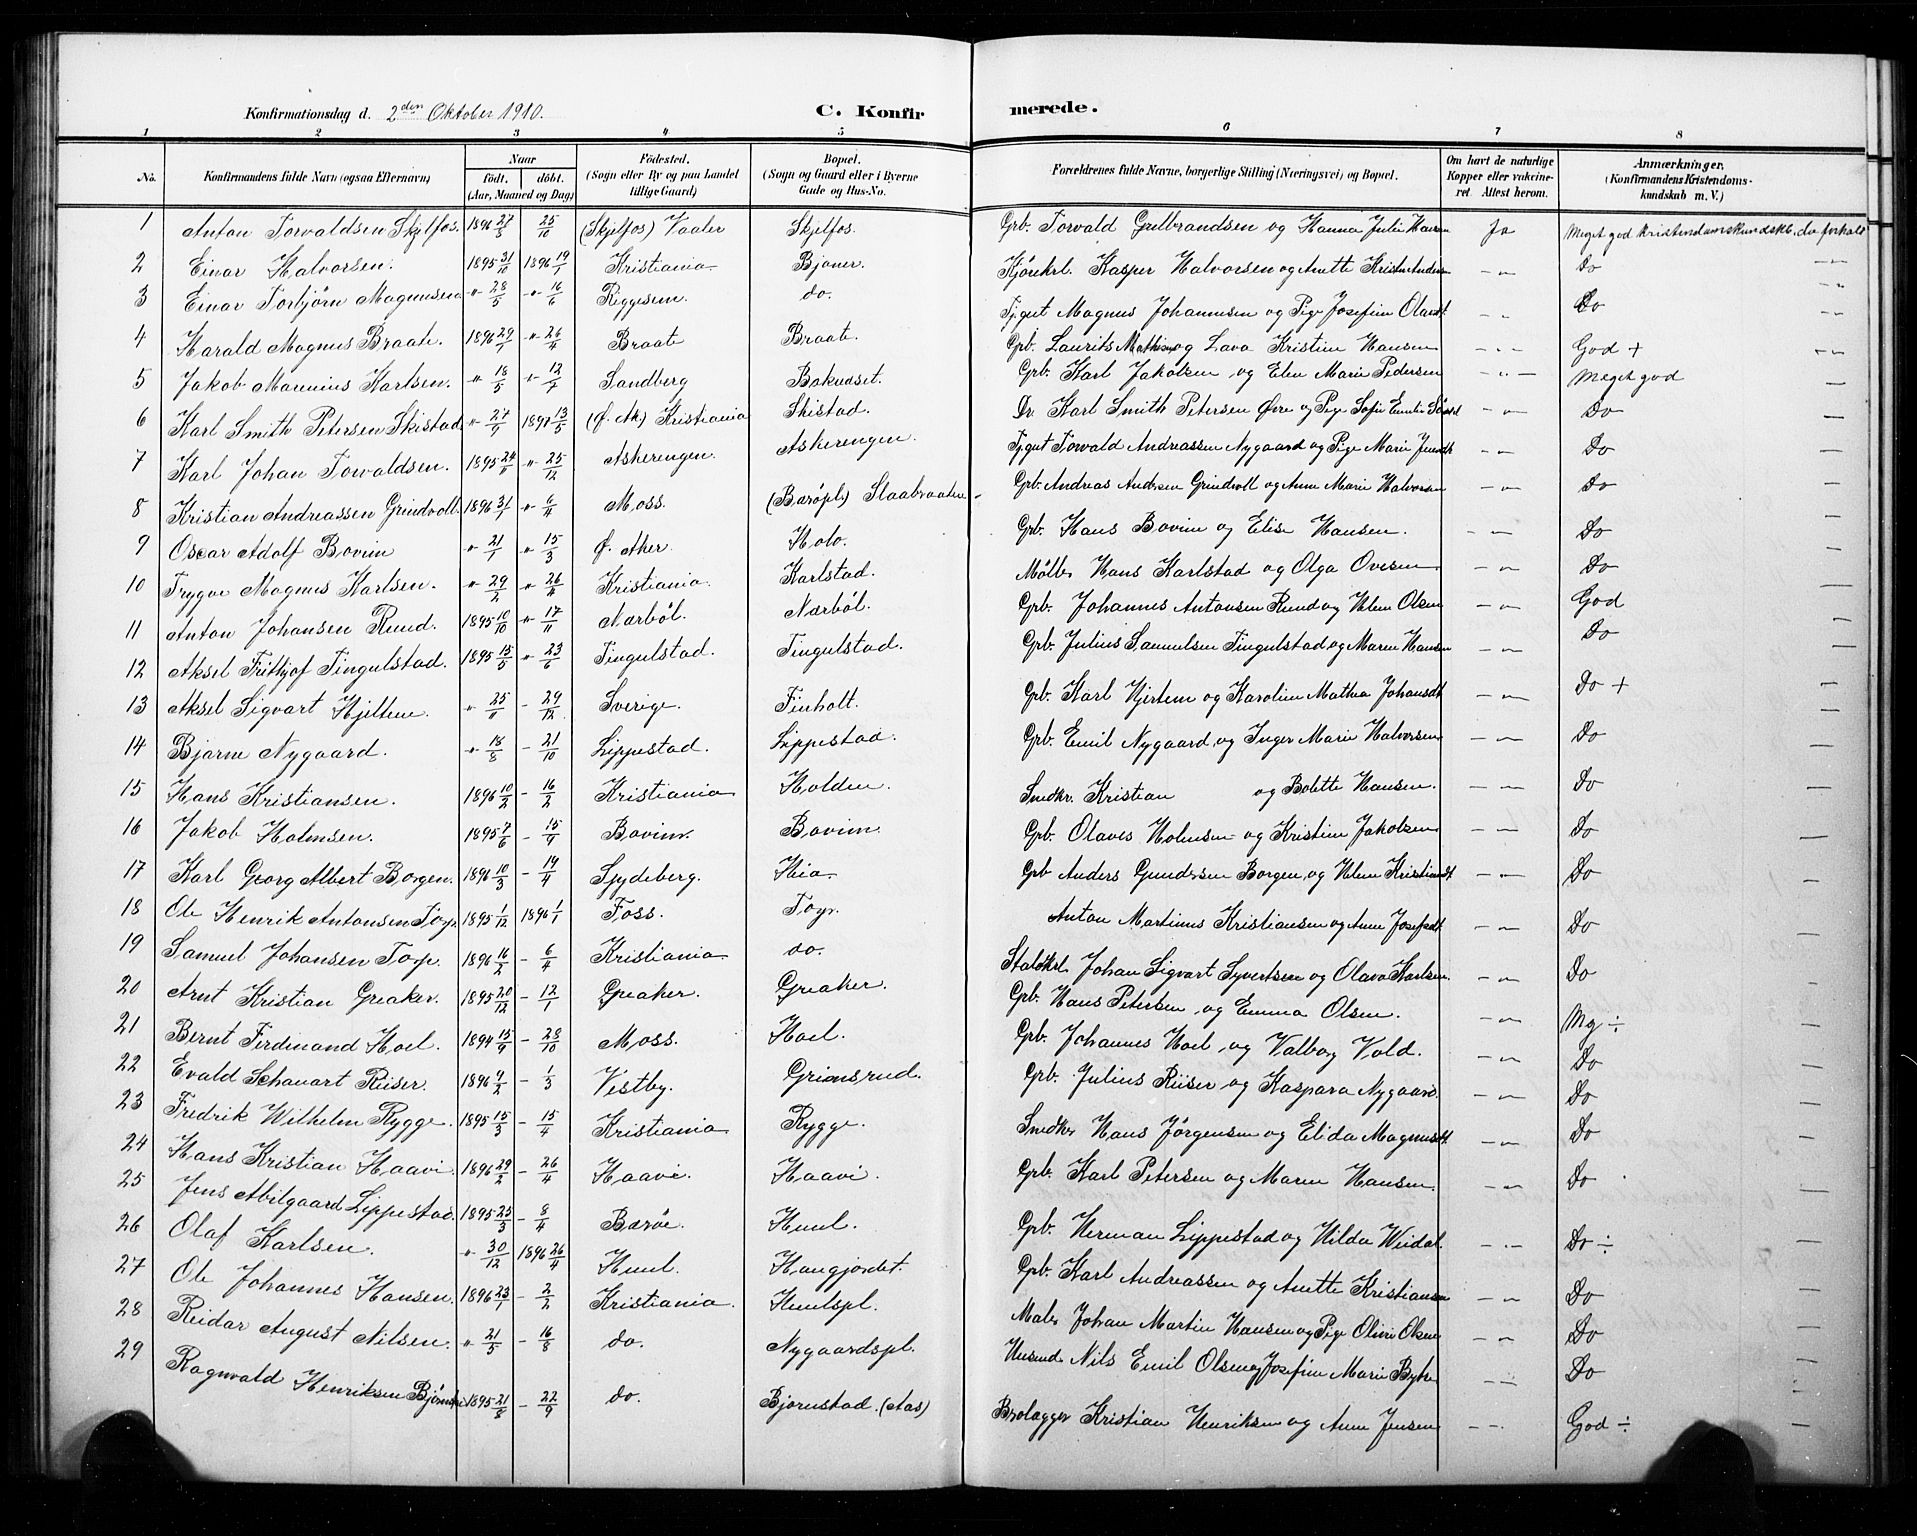 Konfirmationsdag d. 2den Oktober 1910. C. Konfirmerede.
1 2 3 4 5 6 7 8
No. Konfirmandens fulde Navn (ogsaa Efternavn). Naar födt. döbt. (Aar, Maaned og Dag) Födested. (Sogn eller By og paa Landet tillige Gaard) Bopæl. (Sogn og Gaard eller i Byerne Gade og Hus-No. Forældrenes fulde Navne, borgerlige Stilling (Næringsvei) og Bopæl. Om havt de naturlige Kopper eller vakcineret Attest herom. Anmærkninger, (Konfirmandens Kristendomskundskab m. V.)
1 Anton Torvaldsen Skjelfos. 1896 27/8 25/10 (Skjelfos) Vaaler Skjelfos. Grb. Torvald Gulbrandsen og Hanna Julie Hansen Ja Meget god Kristendomskundskb. do forhold
2 Einar Halvorsen. 1895 31/10 1896 19/1 Kristiania Bjoner. Kjörekrl. Kasper Halvorsen og Anette Kristin Anders -"- Do -"-
3 Einar Torbjörn Magnusen -"- 28/5 -"- 16/6 Riggesem. do. Tjgut Magnus Johannesen og Pige Josefine Olavsdt -"- Do "
4 Harald Magnus Braate. 1896 29/1 -"- 26/4 Braate Braate. Grb. Laurits Mathisen og Lava Kristine Hansen -"- God + -"-
5 Jakob Marinius Karlsen. -"- 18/5 -"- 12/7 Sandberg Bakudset. Grb. Karl Jakobsen og Elen Marie Pedersen -"- Meget god
6 Karl Smith Petersen Skistad -"- 27/9 1897 13/5 (Ø. Ak) Kristiania Skistad. Dr. Karl Smith Petersen Øvre og Pige Sofie Emilie -"- Do -
7 Karl Johan Torvaldsen. 1895 24/11 -"- 25/12 Askerengen. Askerengen. Tjgut Torvald Andreassen Nygaard og Pige Marie Jensdt -"- Do
8 Kristian Andreassen Grindvoll. 1896 31/1 -"- 6/4 Moss. (Baröpl.) Slaabraaten - Grb. Andreas Andersen Grindvoll og Anne Marie Halvorsen -"- Do -
9 Oscar Adolf Bovim -"- 21/1 -"- 15/3 Ø. Aker. Holo. Grb. Hans Bovim og Elise Hansen. -"- Do -
10 Trygve Magnus Karlsen. -"- 29/2 -"- 26/4 Kristiania. Karlstad. Mölle Hans Karlstad og Olga Ovesen -"- Do -
11 Anton Johansen Rund. 1895 10/10 -"- 17/11 Nærböl. Nærböl. Grb. Johannes Antonsen Rund og Helene Olsen -"- God -
12 Aksel Frithjof Tingulstad. 1895 15/5 -"- 23/6 Tingulstad. Tingulstad. Grb. Julius Samuelsen Tingulstad og Maren Hansen -"- Do -
13 Aksel Sigvart Hjeltem. -"- 25/11 - 29/12 Sverige. Finholt. Grb. Karl Hjertem og Karoline Mathea Johansdt -"- Do + -
14 Bjarne Nygaard. -"- 18/8 - 21/10 Lippestad. Lippestad. Grb. Emil Nygaard og Inger Marie Halvorsen -"- Do -
15 Hans Kristiansen. 1896 10/2 - 16/2 Kristiania Holden. Snedkr. Kristian og Bolette Hansen. -"- Do -
16 Jakob Holmsen. 1895 7/6 - 15/9 Bovim. Bovim. Grb. Olaves Holmsen og Kristine Jakobsen -"- Do -
17 Karl Georg Albert Borgen. 1896 10/3 - 19/4 Spydeberg. Hia. Grb Anders Gundersen Borgen og Helene Kristiansdt. -"- Do -
18 Ole Henrik Antonsen Torp. 1895 1/12 1896 1/1 Foss. Torp. Anton Martinus Kristiansen og Anne Josefsdt. -"- Do -
19 Samuel Johansen Torp. 1896 16/2 - 6/4 Kristiania do. Staldkrl. Johan Sigvart Syvertsen og Olava Karlsen -"- Do -
20 Arnt Kristian Greaker. 1895 20/12 - 12/1 Greaker. Greaker. Grb. Hans Petersen og Emma Olsen. -"- Mg ÷ -
21 Bernt Ferdinand Hoel. 1894 15/9 - 28/10 Moss. Hoel. Grb. Johannes Hoel og Valborg Vold. -"- Do -
22 Evald Schauart Riiser. 1896 9/2 - 1/3 Vestby. Grimsrud. Grb. Julius Riiser og Kaspara Nygaard. -"- Do -
23 Fredrik Wilhelm Rygge. 1895 15/3 - 15/4 Kristiania Rygge. Snedkr Hans Jørgensen og Elida Magnusdt. -"- Do -
24 Hans Kristian Haavi. 1896 29/2 - 26/4 Haavi. Haavi. Grb. Karl Petersen og Maren Hansen. -"- Do -
25 Jens Abilgaard Lippestad. 1895 25/3 - 8/4 Baröe. Huul. Grb. Herman Lippestad og Hilda Weidal. -"- Do ÷ -
26 Olaf Karlsen. -"- 30/12 1896 26/4 Huul. Haugjordet. Grb. Karl Andreassen og Anette Kristiansen -"- Do -
27 Ole Johannes Hansen. 1896 23/1 - 2/2 Kristiania. Huulspl. Maler Johan Martin Hansen og Pige Olivie Olsen -"- Do -
28 Reidar August Nilsen. -"- 21/5 - 16/8 do. Nygaardspl. Husmd Nils Emil Olsen og Josefine Marie -"- Do -
29 Ragnvald Henriksen 1895 21/8 - 22/9 do. Bjørnstad. (Aas) Brolægger Kristian Henriksen og Anne Jensen -"- God ÷ -